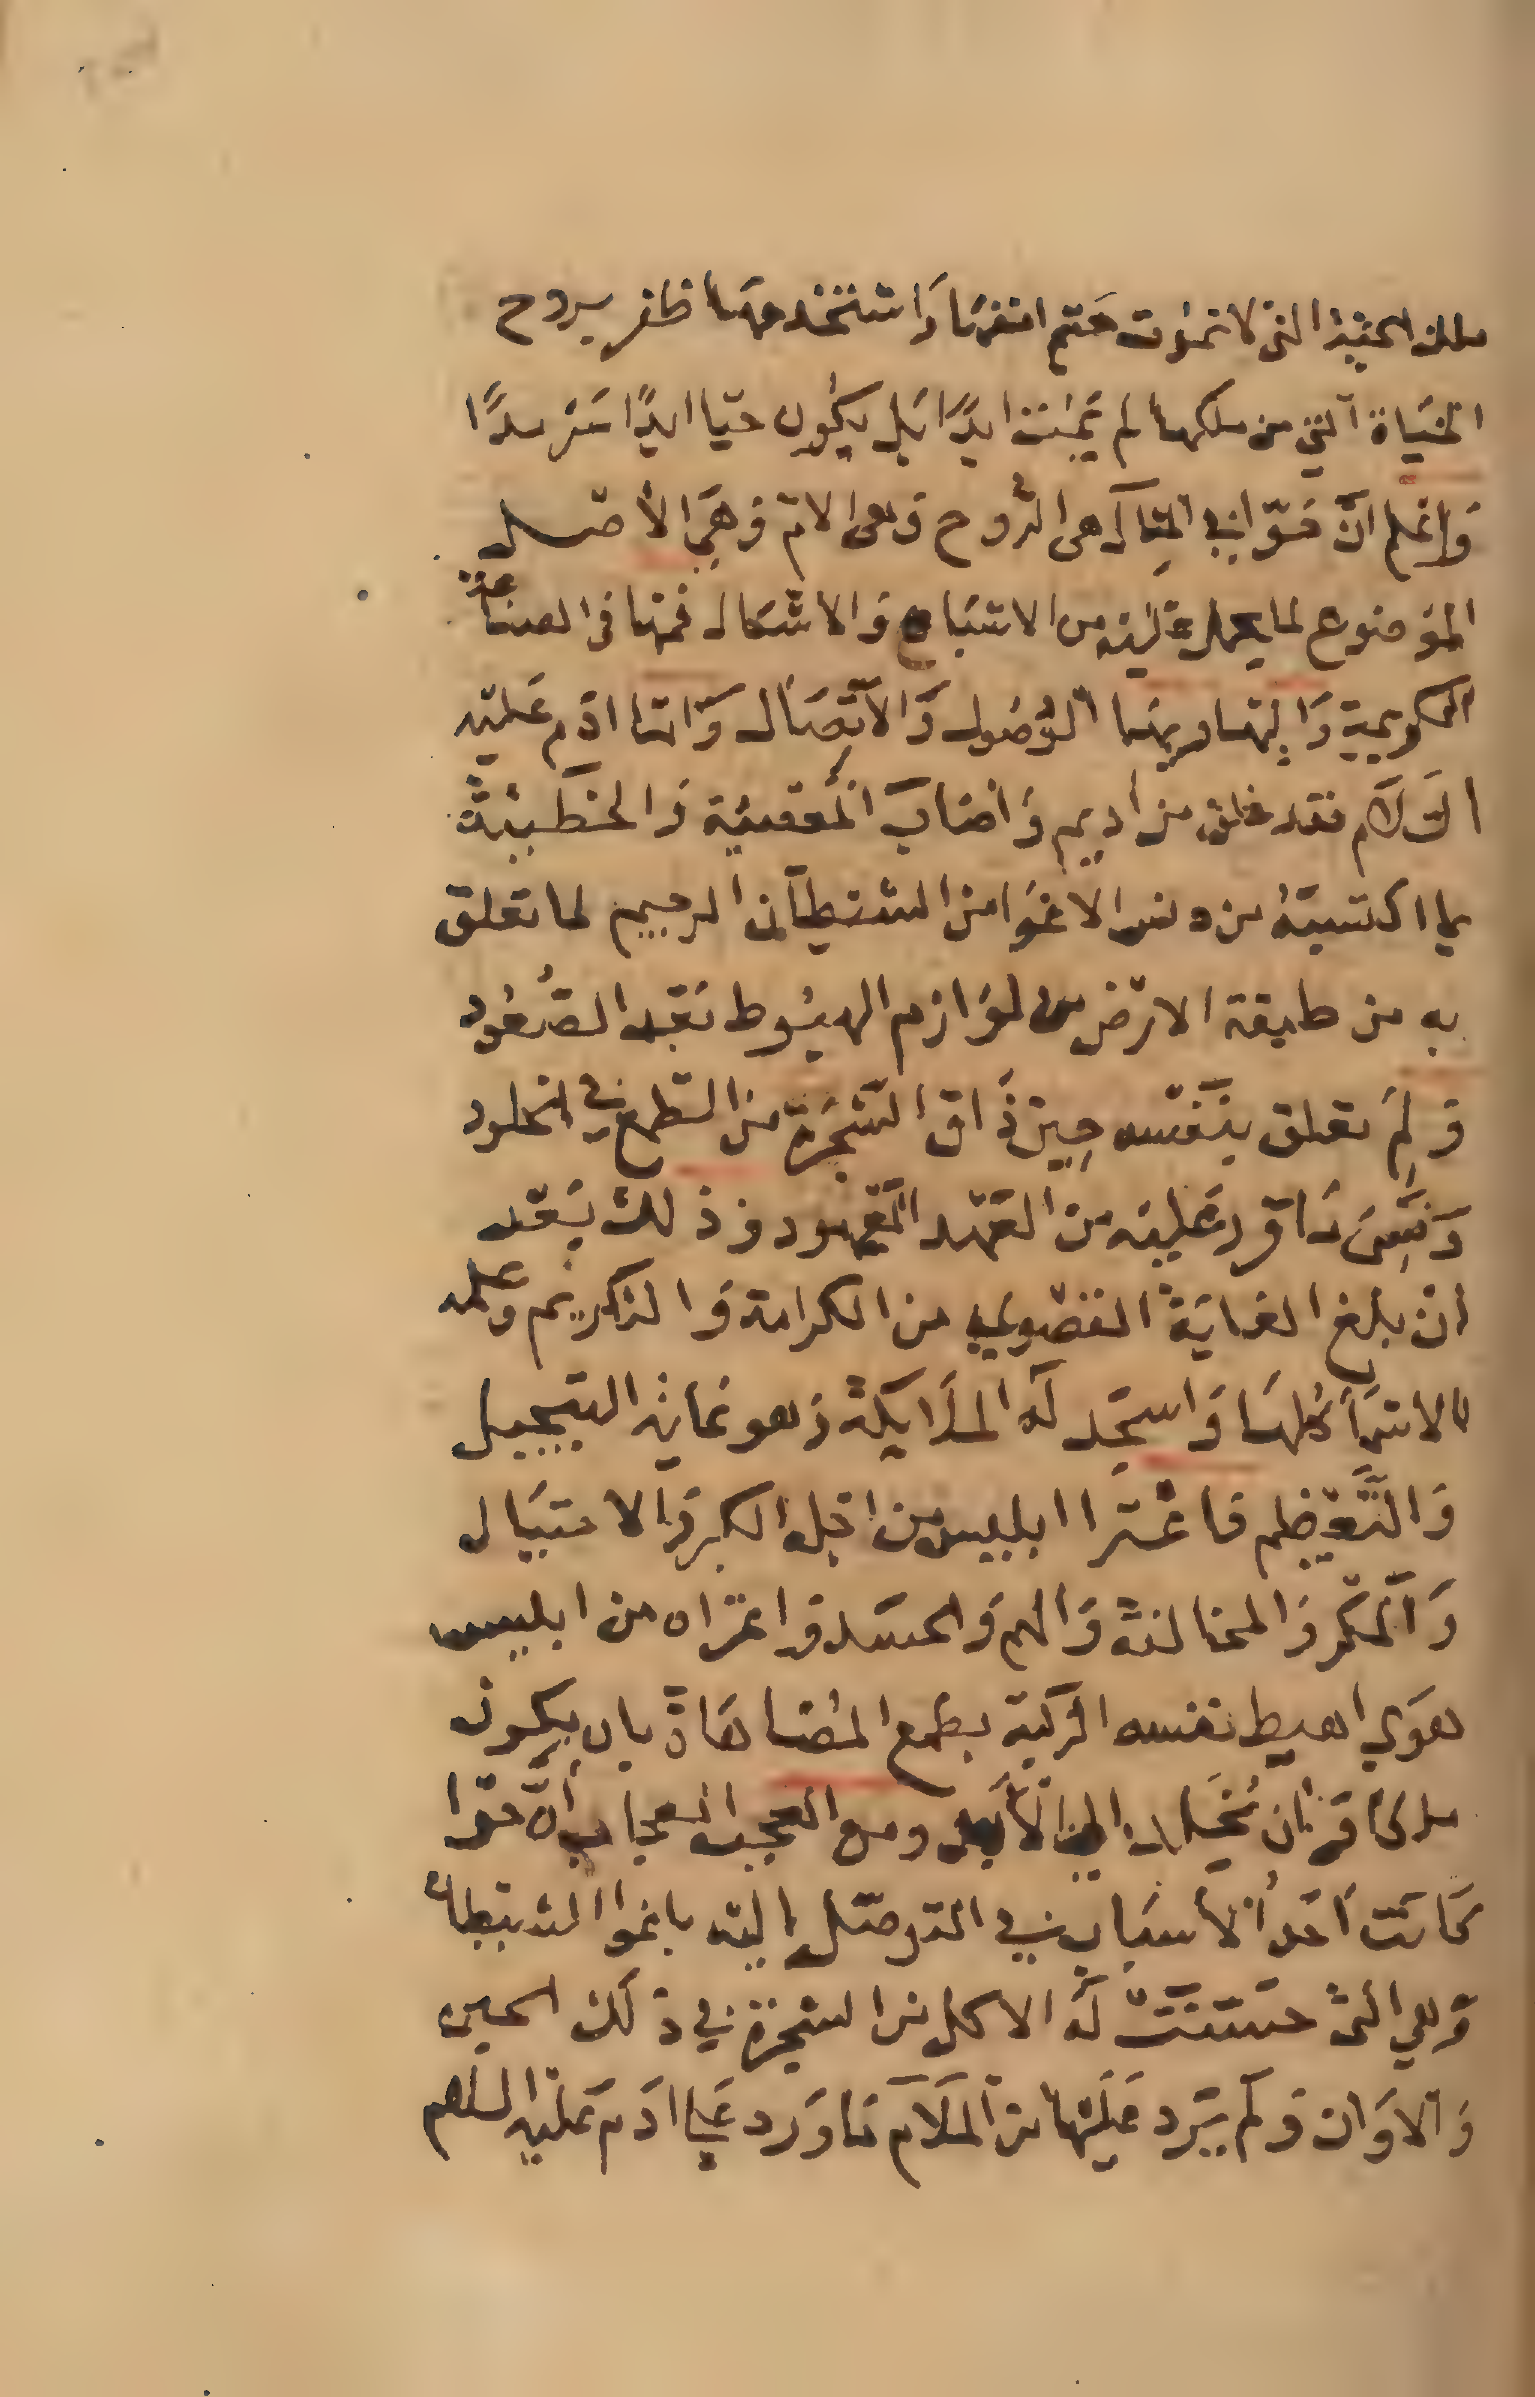 ملك الجنيد التى لا تموت حتم انفرها واستخدمها ظفر بروح
الحَيَاة التي من ملكها لم يَمُت ابدًا بَل يكُون حيّا ابدًا سَرمدًا
وَاعْلم انّ حَوّا في المِثَال هى الرّوح وَهى الام وَهَي الأصل
المَوضوع لما يحمل عَليْه من الاشباح وَالاشكال فمنها فى الصناعة
الكريمة وَاليها وبها الوُصُول وَالاتِّصَال وَامّا ادَم عَليْه
السّلام فقد خلق من اديم وَاصَابَ المعصيَة وَالخَطيئة
بما اكتسبَهُ من دنس الاغوا من الشيطان الرجيم لما تعلق
به من طبيعة الارض من لوَازم الهبُوط بَعْد الصُّعُود
وَلِمَ تعلق بنَفْسه حِين ذَاق الشجَرَة من الطمع في الخلود
وَنَسِىَ مَا ورد عَليْه من العَهد المَعهود وَذلك بَعْد
انْ بلغ الغايَة القصْوي من الكرامة وَالتكريم وعلمه
الاسْمَا كلهَا وَاسجَد لهُ الملايكة وَهو غاية التبجيل
وَالتَّعظيم فاعترا ابليس من اجل الكبر وَالاحتيَال
وَالمكر وَالمخالفة وَالهم وَالحسَد وَاعتراه من ابليس
هوَي اهبط نفسه الزكية بطمع المضَاهَاة بان يكون
ملكا وَان يُخَلد الي الأبد ومع العجب العجاب أنّ حوّا
كَانَت اَحَد الأسبَاب في التوصّل إليْه باغوا الشيطان
وَهي التى حَسّنَتْ لهُ الاكل من الشجرَة في ذلك الحين
وَالاوَان وَلم يَرد عَليْها من المَلَام مَا وَرد عَلي ادَم عَليْه السلام